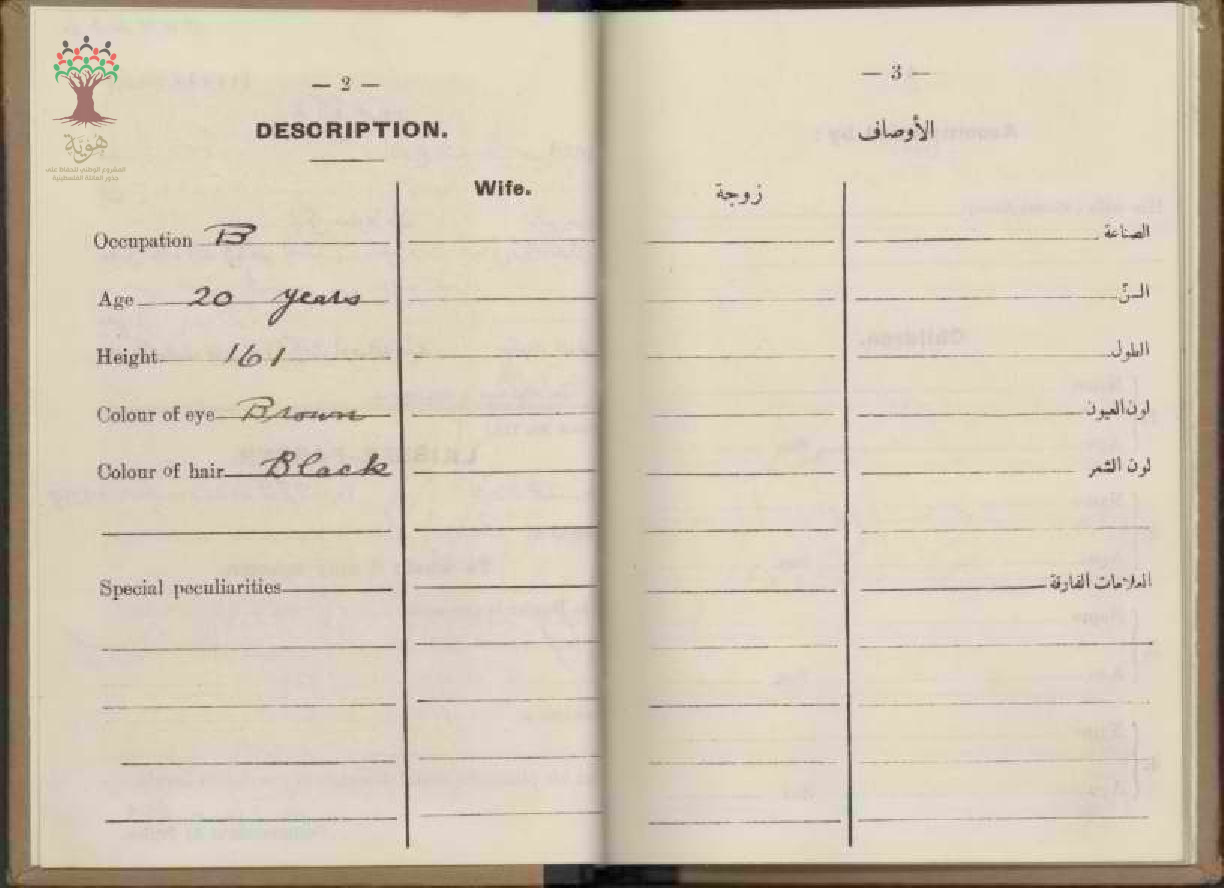 هوية
المشروع الوطني للحفاظ على
جذور العائلة الفلسطينية
— 2 —
DESCRIPTION.
Wife.
Occupation B
Age 20 years
Height 161
Colour of eye Brown
Colour of hair Black
Special peculiarities
— 3 —
الأوصاف
زوجة
الصناعة
السنّ
الطول
لون العيون
لون الشعر
العلامات الفارقة